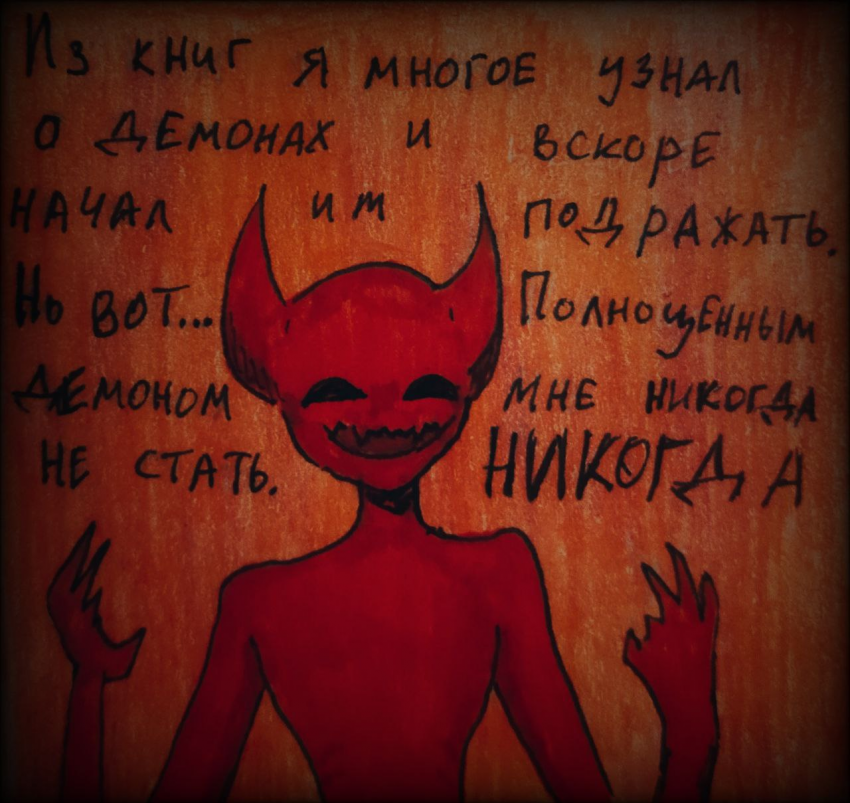 Из книг я многое узнал
о демонах и вскоре
начал им подражать.
Но вот... Полноценным
демоном мне никогда
не стать. НИКОГДА